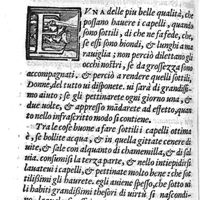 LVNA delle piu belle qualità, che
possano hauere i capelli, quando
sono sottili, di che ne fa fede, che,
se essi sono biondi, & lunghi a ma
rauiglia; non perciò dilettano gli
occhi nostri, se da grossezza sono
accompagnati, & perciò a rendere quelli sottili,
Donne, del tutto ui disponete. ui sarà di grandissi
mo aiuto; se gli pettinarete ogni giorno una, &
due uolte, & appresso madarete ad effetto, quan
to nello infrascritto modo si contiene.
Tra le cose buone a fare sottili i capelli ottima
è, se bollite acqua, & in quella gittate cenere di
uite, & sale con alquanto di chamemilla, & di sal
uia. consumisi la terza parte, & nello intiepidir si la
uateui i capelli, & pettinate molto bene: che sot
tilissimi gli haurete. egli auiene spesso, che sotto ui
li habiti grandissimi thesori di uirtù si nascondino.